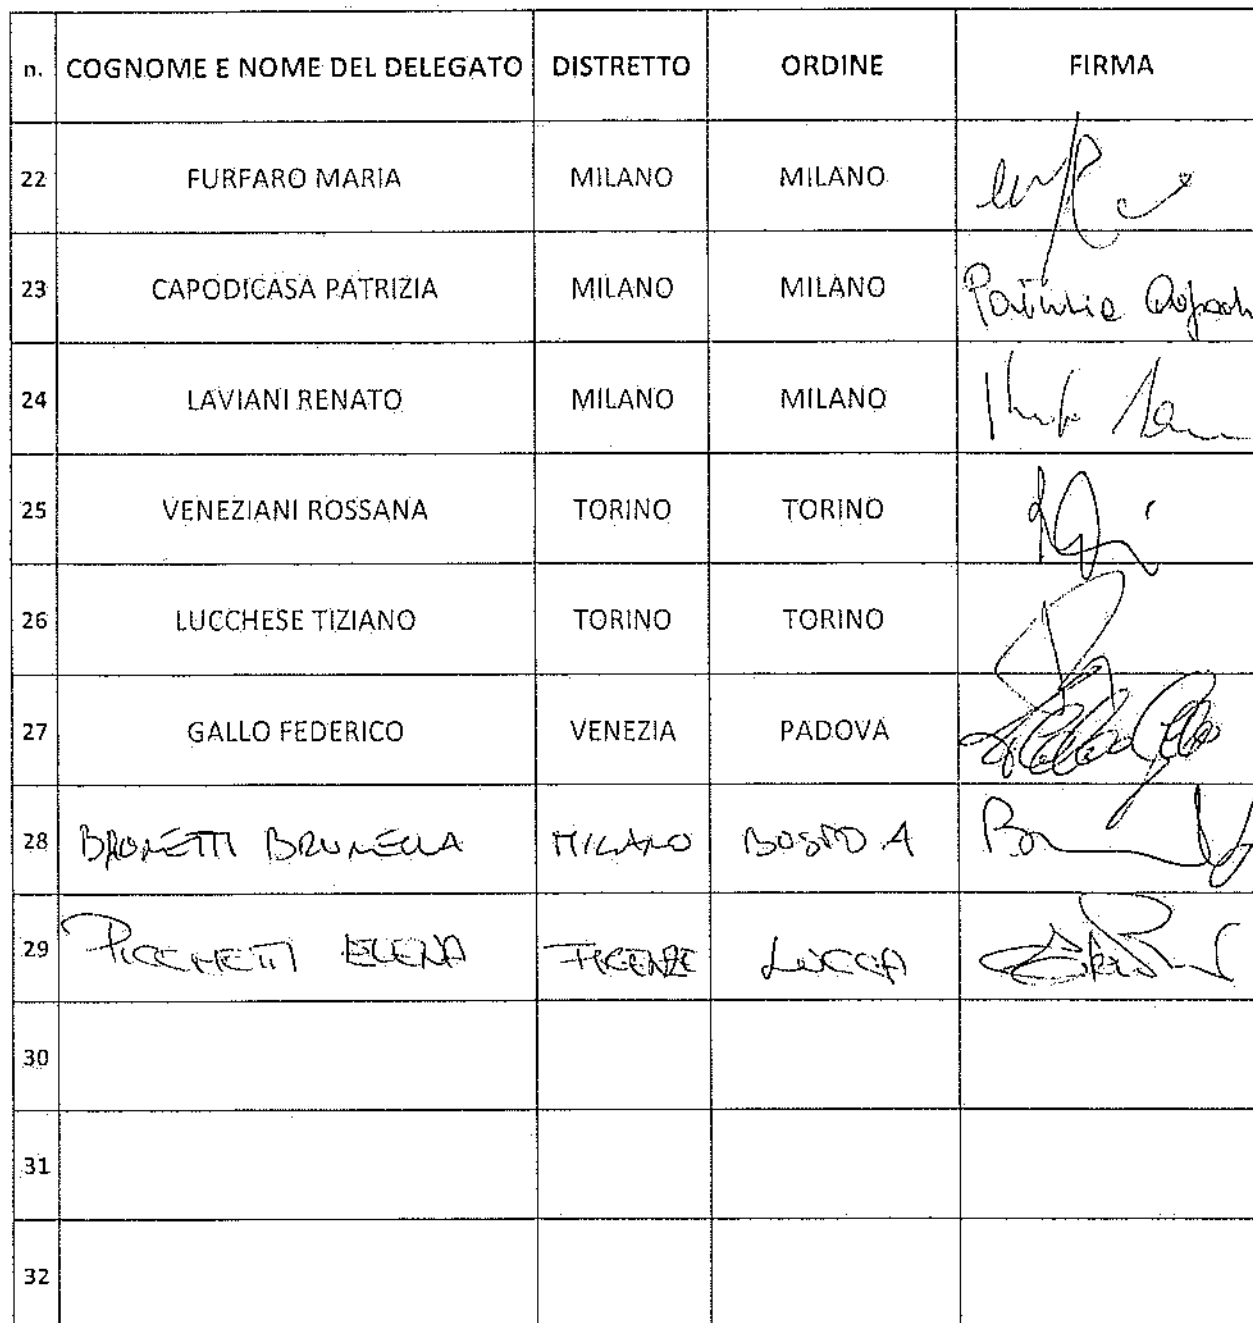 n. COGNOME E NOME DEL DELEGATO DISTRETTO ORDINE FIRMA
22 FURFARO MARIA MILANO MILANO
23 CAPODICASA PATRIZIA MILANO MILANO Patrizia
24 LAVIANI RENATO MILANO MILANO
25 VENEZIANI ROSSANA TORINO TORINO
26 LUCCHESE TIZIANO TORINO TORINO
27 GALLO FEDERICO VENEZIA PADOVA
28 BRUNETTI BRUNELLA MILANO
29 PICCHETTI ELENA FIRENZE LUCCA
30
31
32